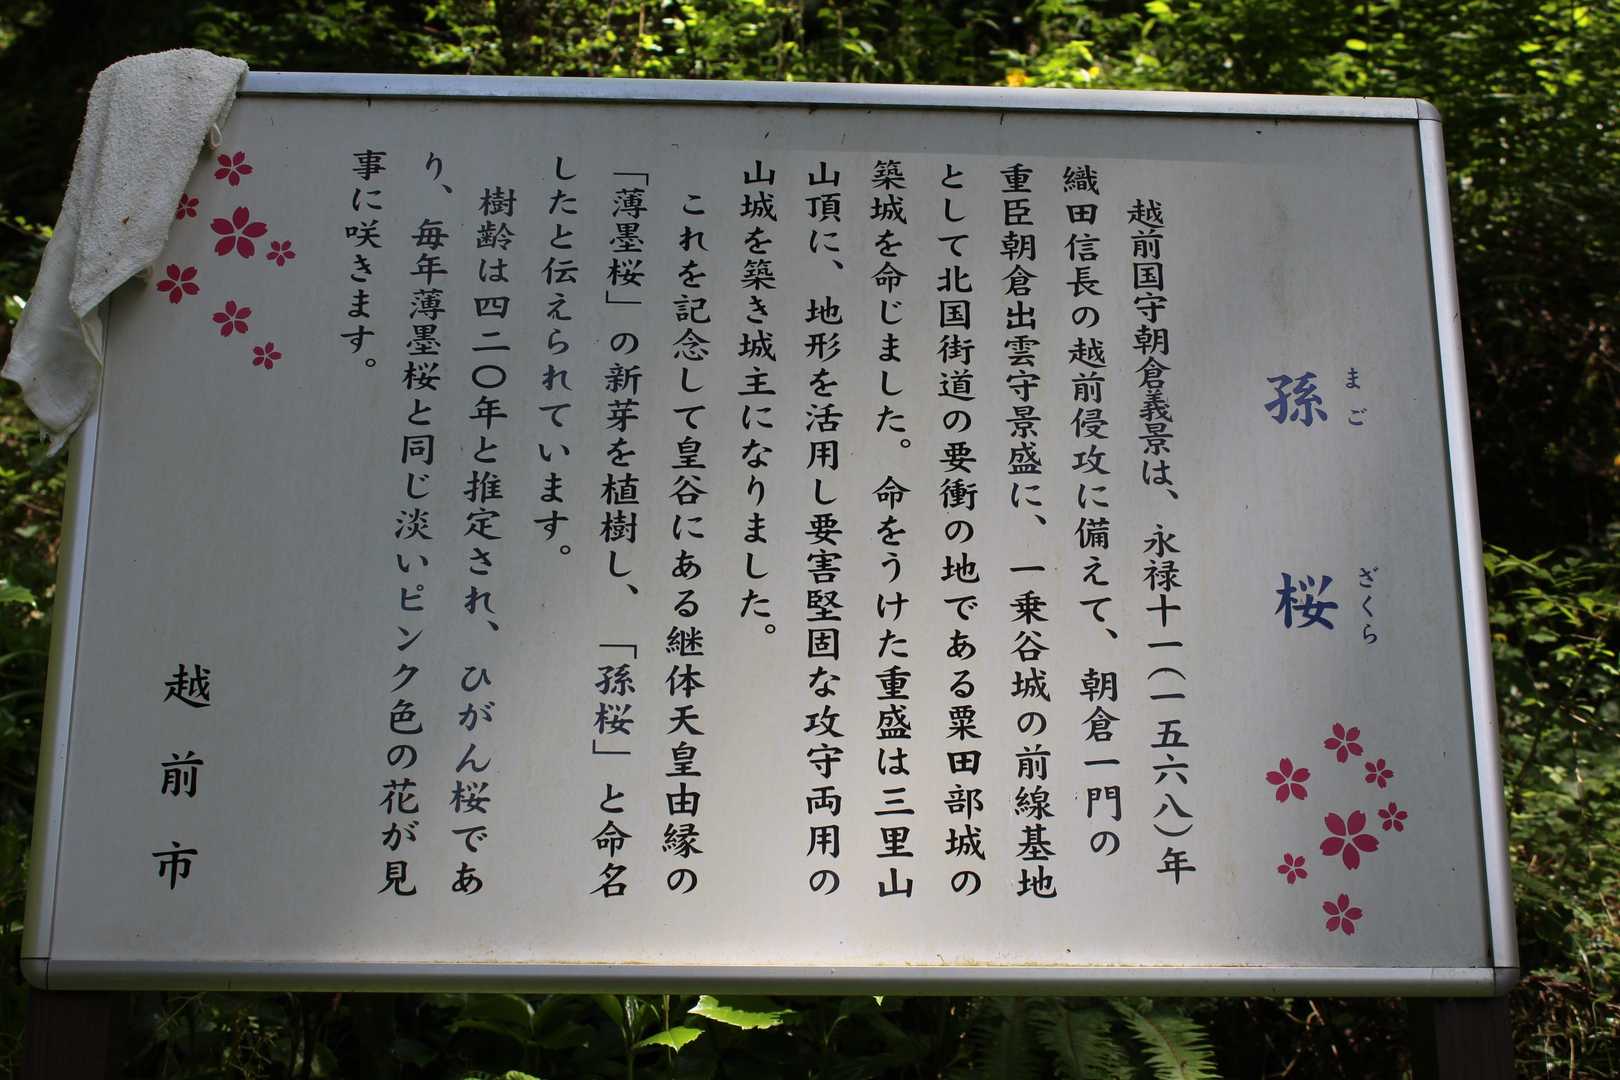 孫桜
まござくら
越前国守朝倉義景は、永禄十一(一五六八)年
織田信長の越前侵攻に備えて、朝倉一門の
重臣朝倉出雲守景盛に、一乗谷城の前線基地
として北国街道の要衝の地である粟田部城の
築城を命じました。命をうけた重盛は三里山
山頂に、地形を活用し要害堅固な攻守両用の
山城を築き城主になりました。
これを記念して皇谷にある継体天皇由縁の
「薄墨桜」の新芽を植樹し、「孫桜」と命名
したと伝えられています。
樹齢は四二〇年と推定され、ひがん桜であ
り、毎年薄墨桜と同じ淡いピンク色の花が見
事に咲きます。
越前市